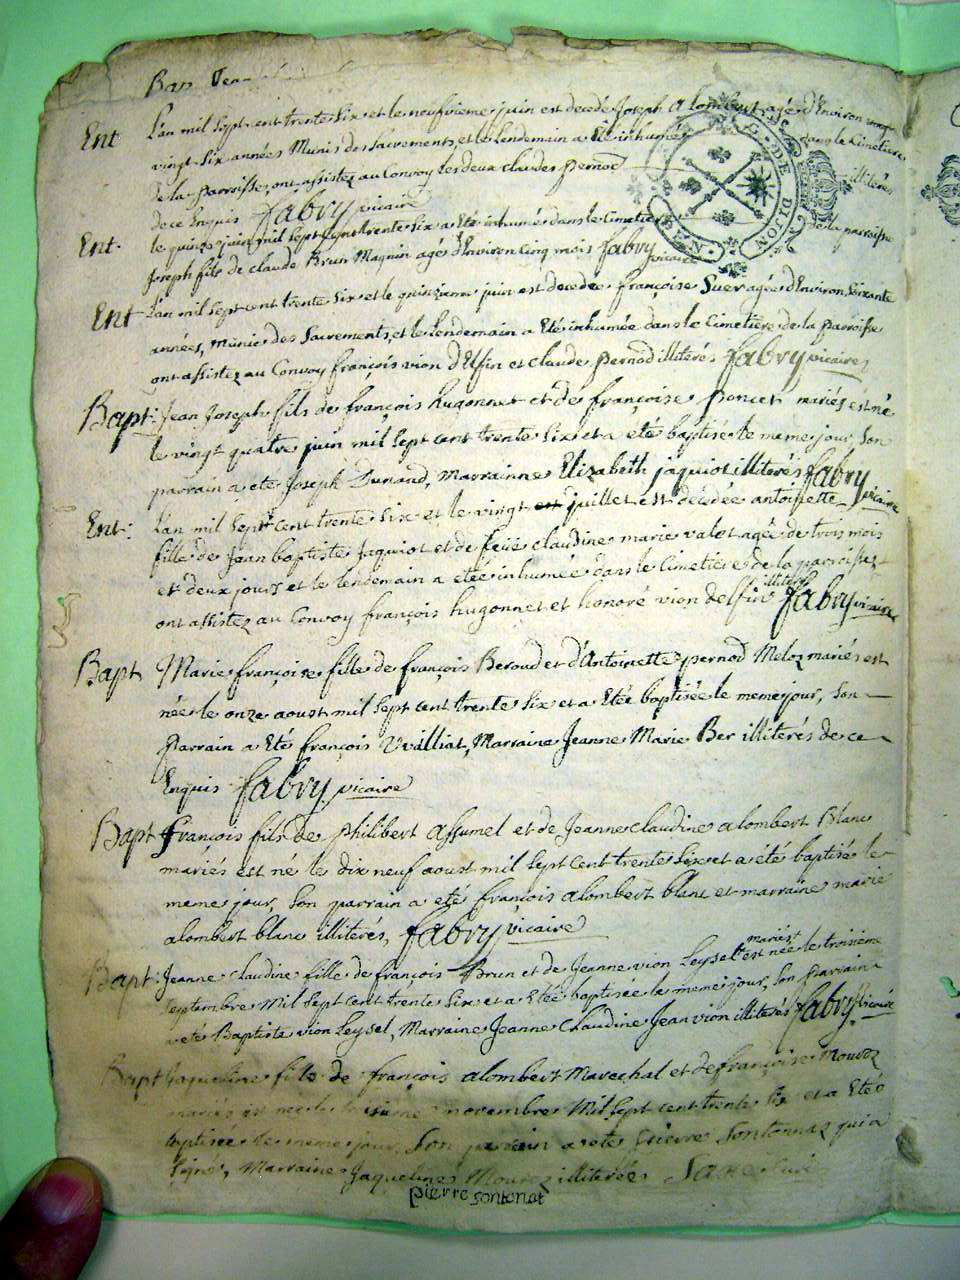 Bap Jean
Ent L'an mil sept cent trente six et le neufvieme juin est decedé Joseph alombert agé d'Environ
vingt six années Munis des sacrements, et le lendemain a Eté inhumé dans le Cimetiere
de la parroisse, ont assistez au Convoy les deux claudes pernod illiterés
de ce Enquis fabry vicaire
Ent. le quinze juin mil sept cent trente six a Eté inhumé dans le Cimetiere de la parroisse
Joseph fils de claude Brun Magnin agé d'Environ Cinq mois fabry vicaire
G. DE DIJON
DEN.
Ent L'an mil sept cent trente six et le quinzieme juin est decedée françoise Suer agée d'Environ soixante
années, munie des Sacrements, et le lendemain a Eté inhumée dans le Cimetiere de la parroisse
ont assistez au Convoy françois vion d'Elfin et claude pernod illiterés fabry vicaire
Bapt: Jean Joseph fils de françois hugonnet et de françoise poncet mariés est né
le vingt quatre juin mil sept cent trente six et a eté baptisé le meme jour, son
parrain a eté Joseph Durand, Marrainne Elizabeth jaquiot illiterés fabry vicaire
Ent: L'an mil sept cent trente six et le vingt juillet est décédée antoinette
fille de Jean baptiste Jaquiot et de feüe claudine marie valot agée de trois mois
et deux jours et le lendemain a etée inhumée dans le Cimetiere de la parroisse,
ont assistez au Convoy françois hugonnet et honoré vion delfin illiterés fabry vicaire
Bapt Marie françoise fille de françois Beroud et d'Antoinette pernod Meloz mariés est
née le onze aoust mil sept cent trente six et a Eté baptisée le meme jour, son
parrain a Eté françois Vuilliat, Marraine Jeanne Marie Ber illiterés de ce
Enquis fabry vicaire
Bapt françois fils de philibert assumel et de Jeanne claudine alombert Blanc
mariés est né le dix neuf aoust mil sept cent trente six et a été baptisé le
meme jour, son parrain a eté françois alombert blanc et marraine marie
alombert blanc illiterés, fabry vicaire
Bapt: Jeanne Claudine fille de françois Brun et de Jeanne vion Leysel mariés est née le troisieme
septembre mil sept cent trente six et a Eté baptisée le meme jour, son parrain
a eté Baptiste vion Leysel, Marraine Jeanne Claudine Jean vion illiterés fabry vicaire
Bapt Jaqueline fille de françois alombert Marechal et de françoise Mourez
mariés est née le novembre Mil sept cent trente six et a Eté
baptisée le meme jour, son parrain a eté pierre sontonnaz qui a
signé, Marraine Jaqueline Mourez illiterée
pierre sontonat